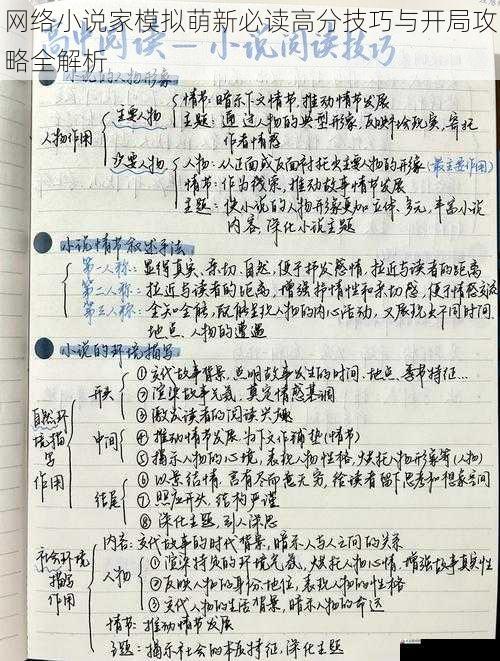 网络小说家模拟萌新必读高分技巧与开局攻
略全解析
高中阅读—小说阅读技巧
小说的人物形象
人物作用
主要人物
情节:暗示下文情节,推动情节发展
主题:通过人物的典型形象,反映社会现实,寄托
作者情感
次要人物
人物:从正面或反面衬托主要人物的形象(最主要作用)
情节:作为线索,推动故事情节发展
主题:使小说的人物形象更加立体、多元,丰富小说
内容,深化小说主题
小说情节叙述手法
第一人称:显得真实、亲切、自然,便于抒发感情,拉近与读者的距离
第二人称:拉近与读者的距离,增强抒情性和亲切感,便于情感交流
第三人称:全知全能,既能呈现人物的内心活动,又展现出不同时间、
地点、人物的遭遇
小说的环境描写
自然环
境描写
作用
开头
①交代故事背景,点明故事发生的时间、地点、季节特征...
②渲染故事气氛,奠定情感基调
③激发读者的阅读兴趣
中间
④推动情节发展,为下文作铺垫(情节)
⑤揭示人物的心境,表现人物性格,烘托人物形象等(人物)
结尾
⑥以景结情,言有尽而意无穷,给读者留下思考和想象空间
⑦照应开头,结构严谨
⑧深化主题,引人深思
社会环境
描写
作用
内容:交代故事的时代背景,暗示人与人之间的关系
人物
①渲染特定的环境气氛,烘托人物心情,增强故事真实性
②反映人物的身份、地位,表现人物的性格
③交代人物的生活背景,暗示人物的命运
情节:推动情节发展
主题:揭示社会的本质特征,深化主题